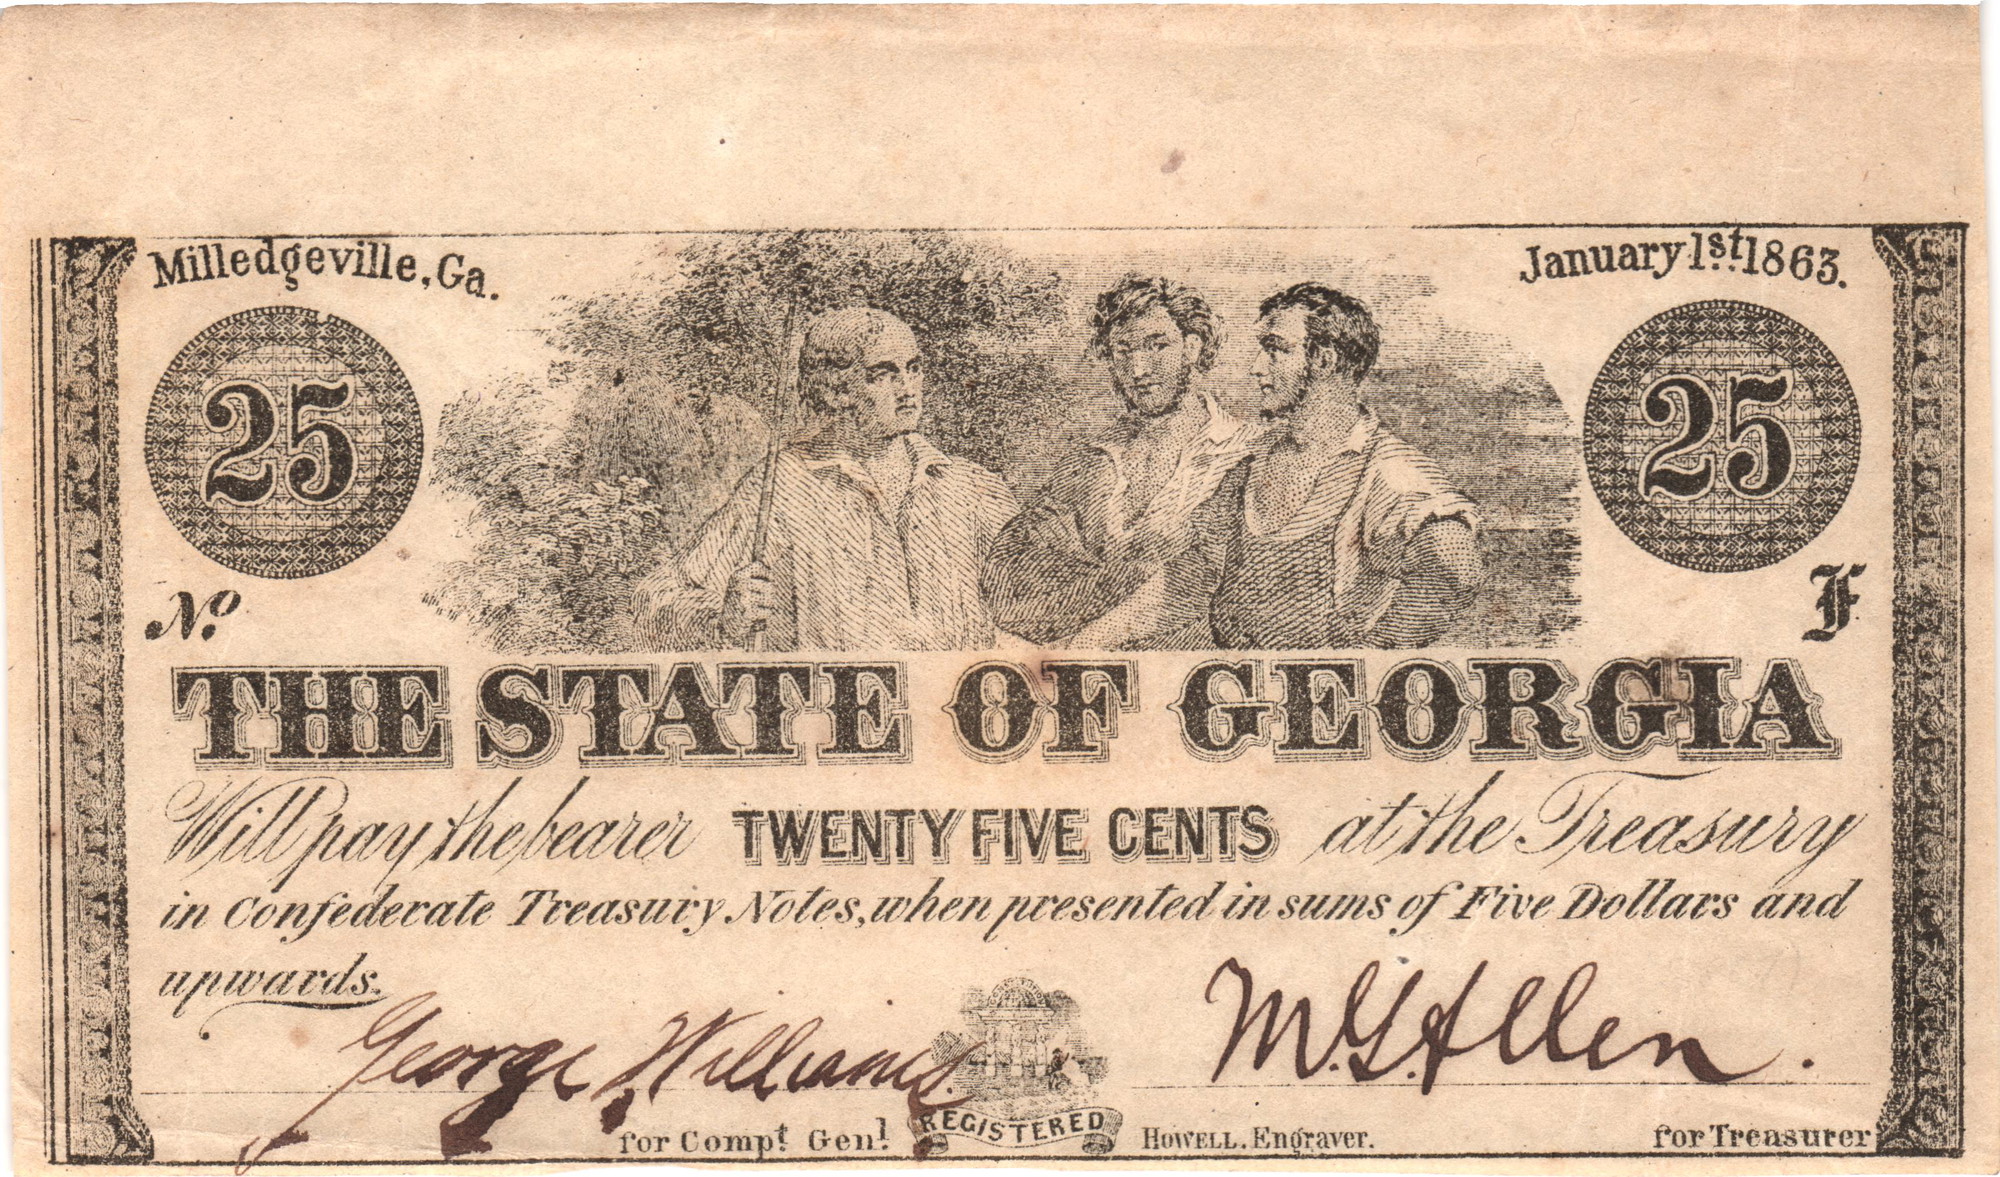 Milledgeville, Ga.
January 1st. 1863.
25
25
No.
F
THE STATE OF GEORGIA
Will pay the bearer TWENTY FIVE CENTS at the Treasury
in Confederate Treasury Notes, when presented in sums of Five Dollars and
upwards.
George Williams.
M. G. Allen.
for Compt. Genl.
REGISTERED
HOWELL. Engraver.
for Treasurer